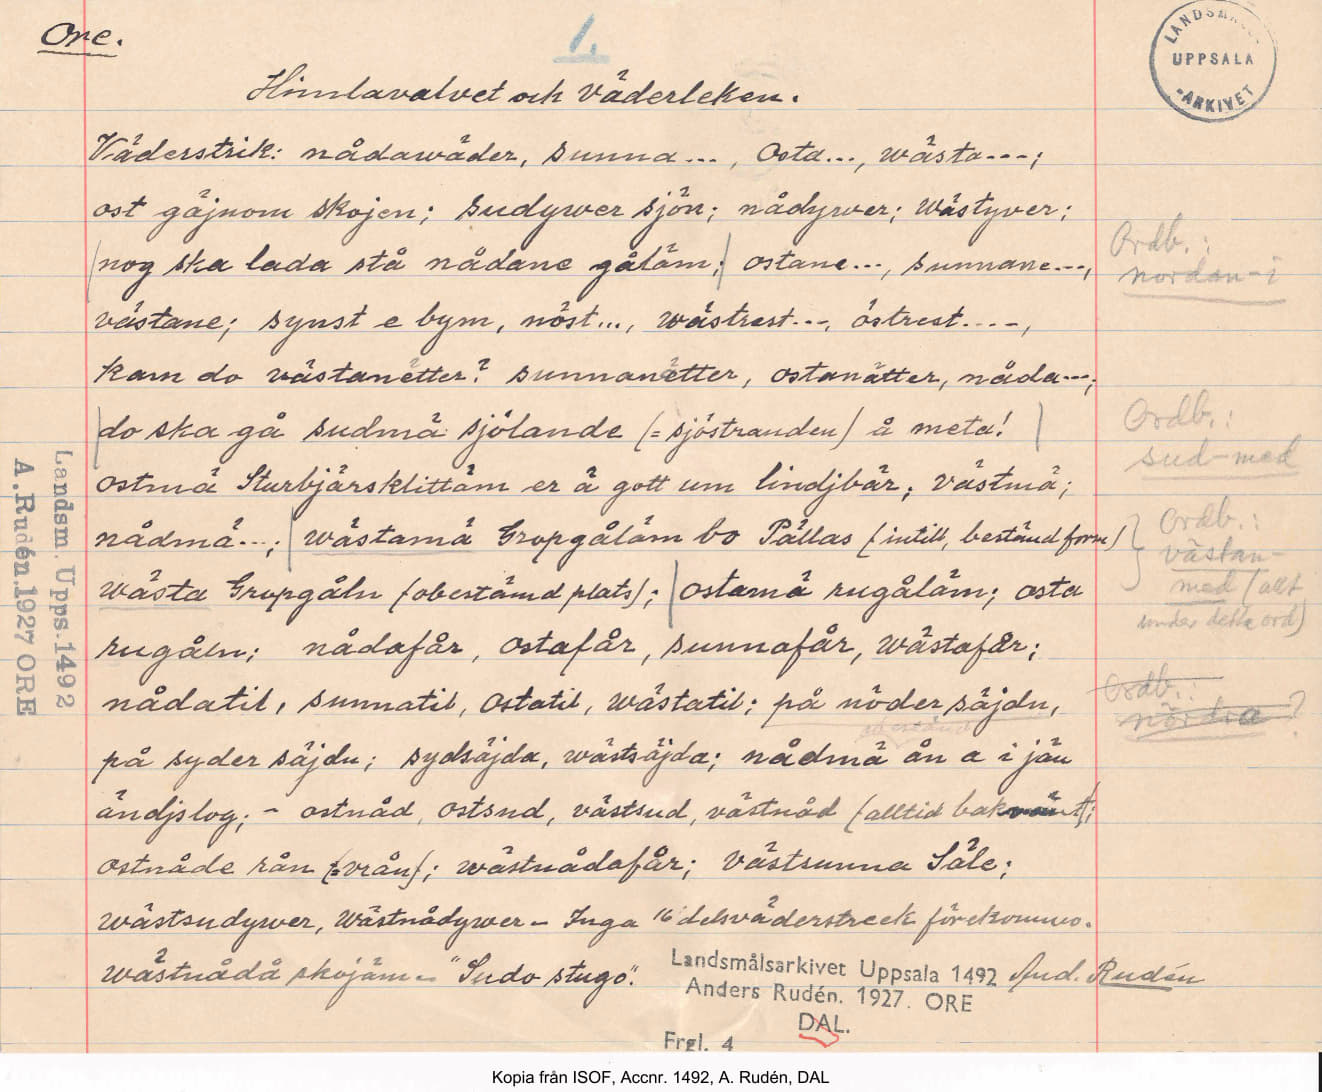 Ore.
1.
LANDSMÅLS-
UPPSALA
-ARKIVET
Himlavalvet och väderleken.
Väderstrik: nådawäder, sunna..., osta..., wästa---;
ost gäjnom skojen; sudywer sjön; nådywer; wästyver;
nog ska lada stå nådane gåläm; ostane..., sunnane---,
västane; synst e bym, nöst..., wästrest---, östrest----,
kam do västanetter? sunnanetter, ostanätter, nåda---;
do ska gå sudmä sjölande (= sjöstranden) å meta!
ostmä Sturbjärsklittäm er ä gott um lindjbär; västmä;
nådmä...; wästamä Gropgåläm bo Pällas (intill, bestämd form)
wästa Gropgåln (obestämd plats); ostamä rugåläm; osta
rugåln; nådafår, ostafår, sunnafår, wästafår;
nådatil, sunnatil, ostatil, wästatil; på nöder säjdn,
på syder säjdn; sydsäjda, wästsäjda; nådmä ån a i jän
ändjslog; - ostnåd, ostsud, västsud, västnåd (alltid bakvänt);
ostnåde rån (=vrån); wästnådafår; västsunna Säle;
wästsudywer, wästnådywer - Inga 16 delsväderstreck förekomma.
wästnådå skojäm - "Sudo stugo".
And. Rudén
Ordb.:
nordan-i
Ordb.:
sud-med
Ordb.:
västan-
med (allt
under detta ord)
Ordb.:
nördra?
Landsm. Upps. 1492
A. Rudén. 1927 ORE
Landsmålsarkivet Uppsala 1492
Anders Rudén. 1927. ORE
DAL.
Frgl. 4
Kopia från ISOF, Accnr. 1492, A. Rudén, DAL